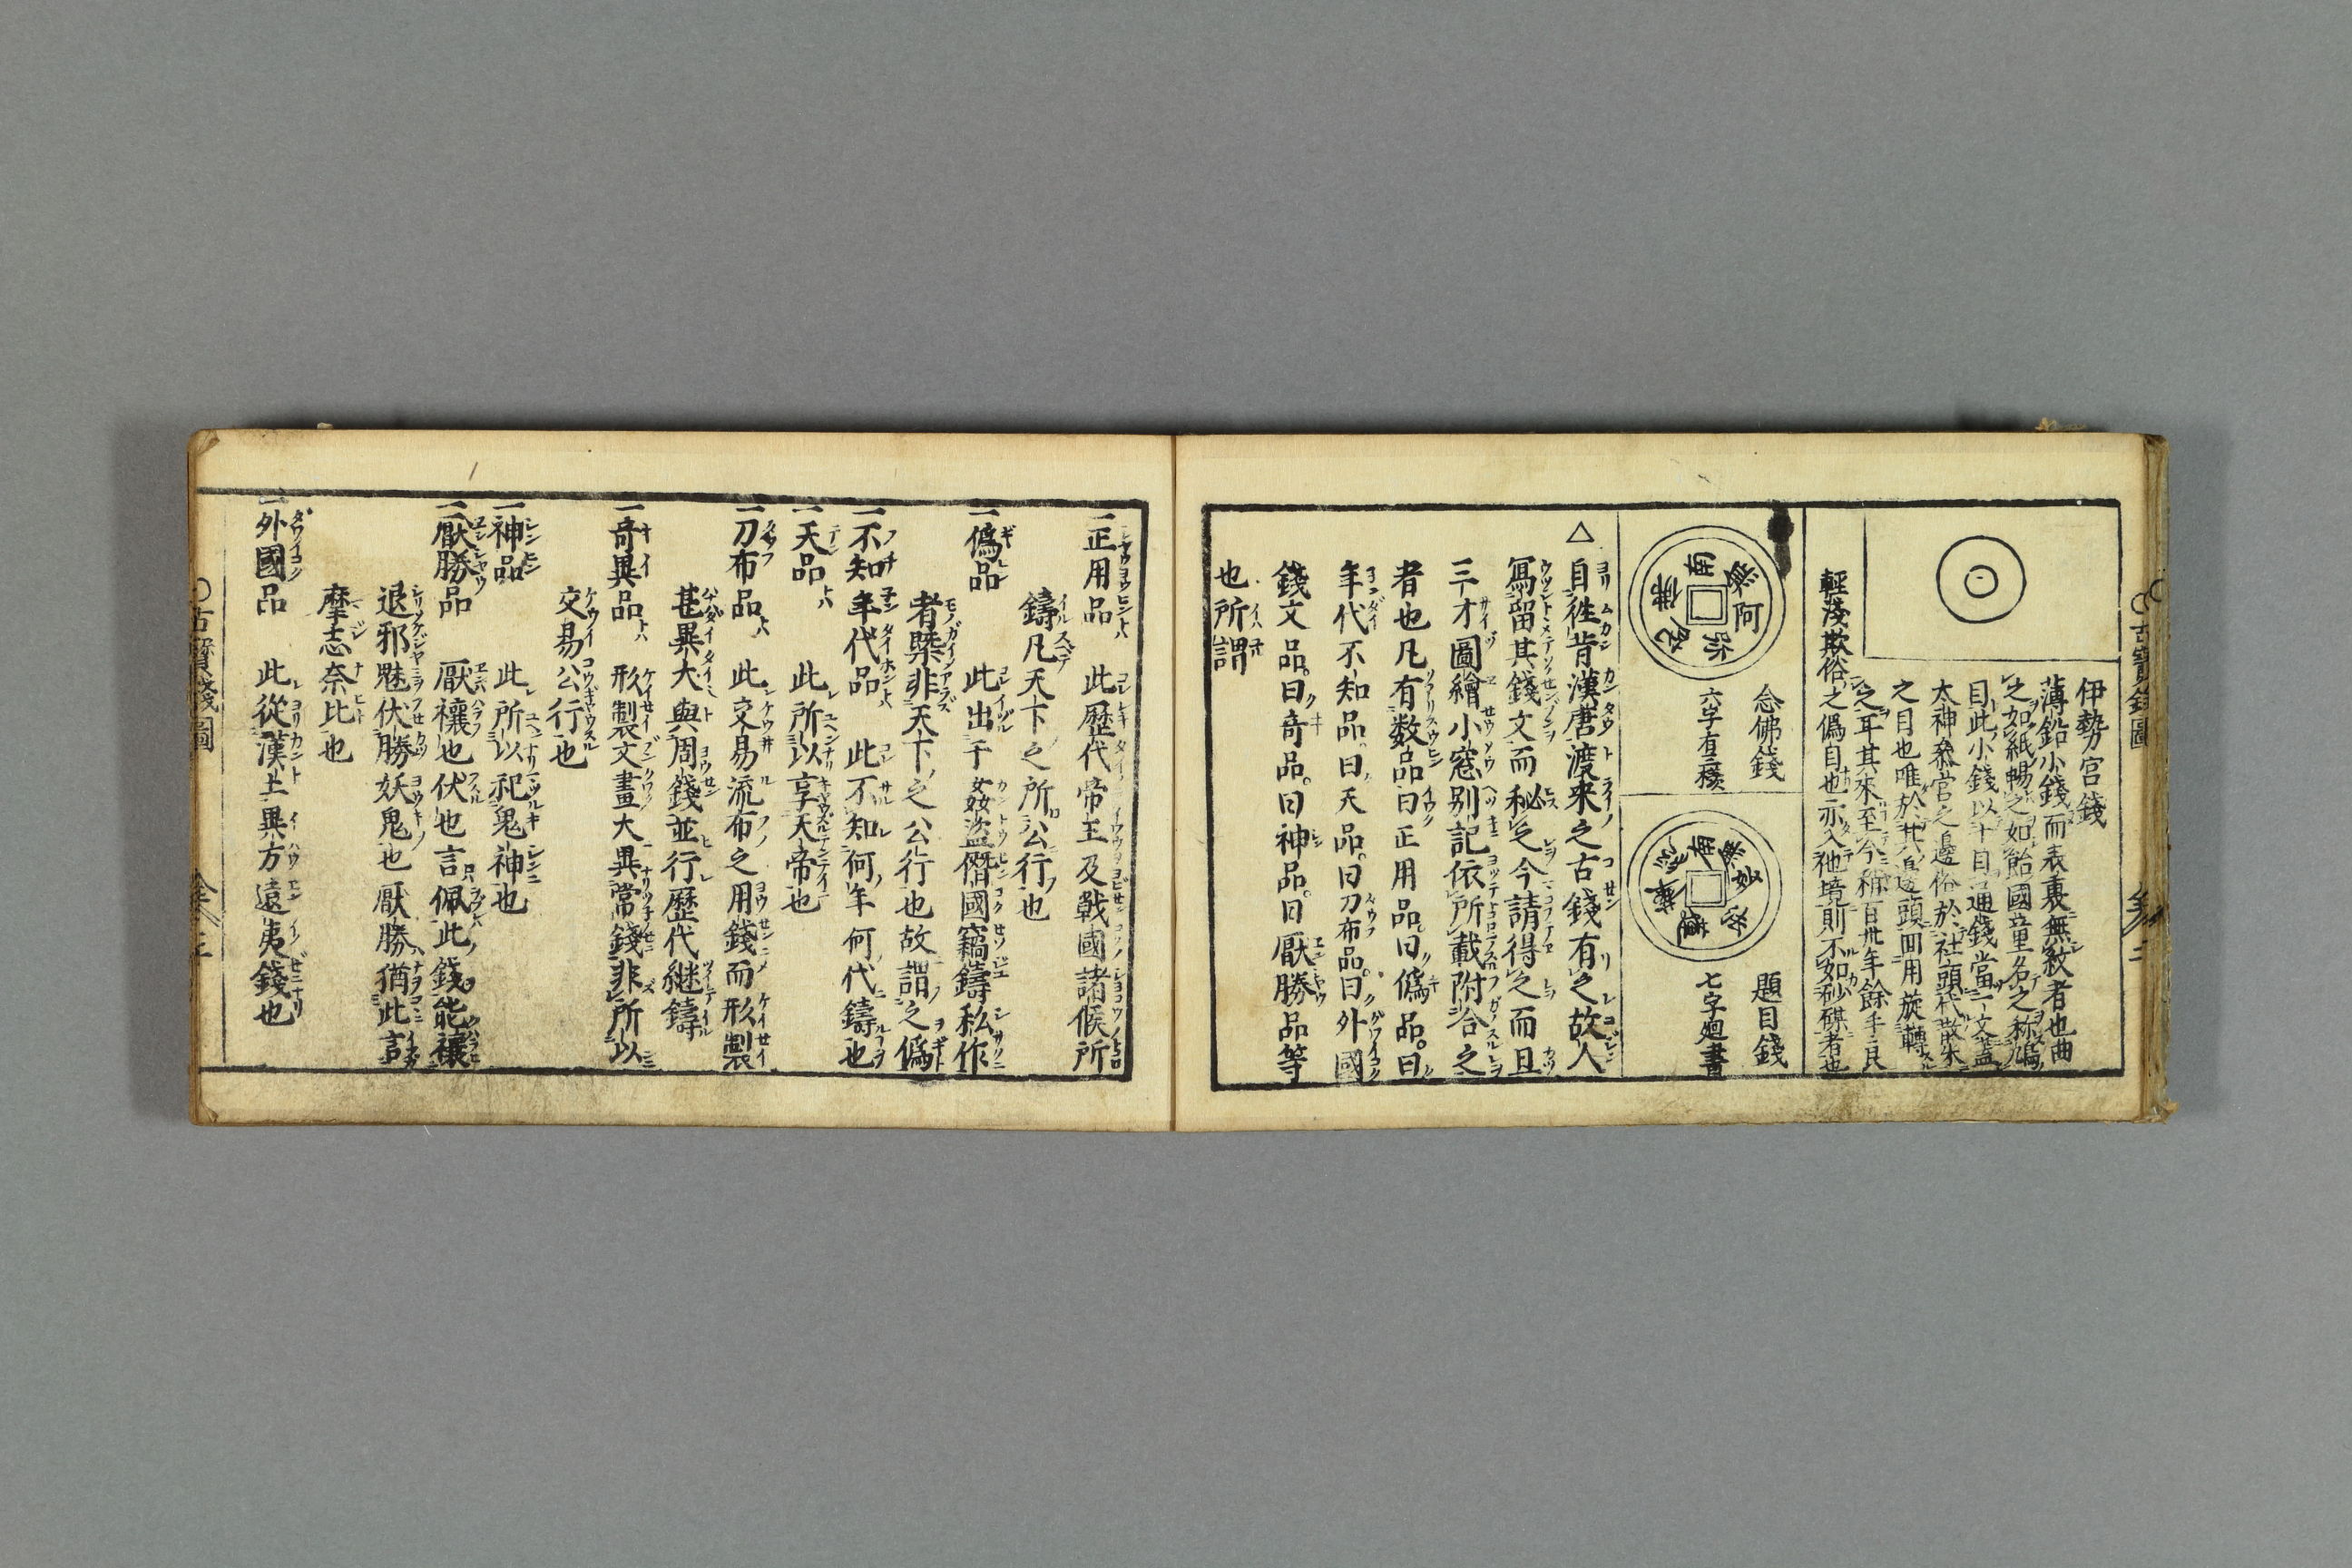 伊勢宮錢
薄鉛小錢而表裏無紋者也曲
之如紙暢之如飴國童名之称鳩
目此小錢以十目通錢當一文蓋
太神參宮之邊俗於社頭代散米
之目也唯於其邊頭回用旋轉
之耳其來至今稱百卅年餘乎良
輕淺欺俗之僞目也亦入他境則不如砂礫者也
念佛錢
六字有三樣
南無阿弥陀佛
題目錢
七字廻書
南無妙法蓮華經
△自徃昔漢唐渡来之古錢有之故人
寫留其錢文而秘之今請得之而且
三才圖繪小窓别記依所載附合之
者也凡有数品曰正用品曰僞品曰
年代不知品曰天品曰刀布品曰外國
錢文品曰奇品曰神品曰厭勝品等
也所謂
一正用品 此歷代帝王及戰國諸候所
鑄凡天下之所公行也
一僞品 此出于姦盗僭國竊鑄私作
者槩非天下之公行也故謂之僞
一不知年代品 此不知何年何代鑄也
一天品 此所以享天帝也
一刀布品 此交易流布之用錢而形製
甚異大與周錢並行歷代継鑄
一奇異品 形製文畫大異常錢非所以
交易公行也
一神品 此所以祀鬼神也
一厭勝品 厭禳也伏也言佩此錢能禳
退邪魅伏勝妖鬼也厭勝猶此言
摩志奈比也
一外國品 此從漢土異方遠夷錢也
古寶錢圖